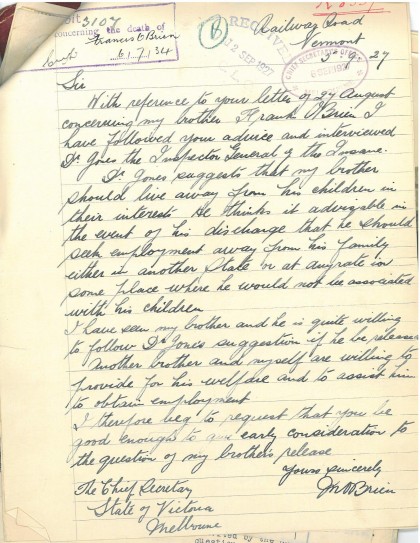 3107
concerning the death of
Francis O'Brien
6.7.34
RECEIVED
2 SEP 1927
Railway Road
Vermont
27
Sir
With reference to your letter of 29 August
concerning my brother Frank O'Brien I
have followed your advice and interviewed
Dr Jones the Inspector General of the Insane.
Dr Jones suggests that my brother
should live away from his children in
their interest. He thinks it advisable in
the event of his discharge that he should
seek employment away from his family
either in another State or at anyrate in
some place where he would not be associated
with his children
I have seen my brother and he is quite willing
to follow Dr Jones suggestion if he be released
Another brother and myself are willing to
provide for his welfare and to assist him
to obtain employment
I therefore beg to request that you be
good enough to give early consideration to
the question of my brothers release
Yours sincerely
O'Brien
The Chief Secretary
State of Victoria
Melbourne